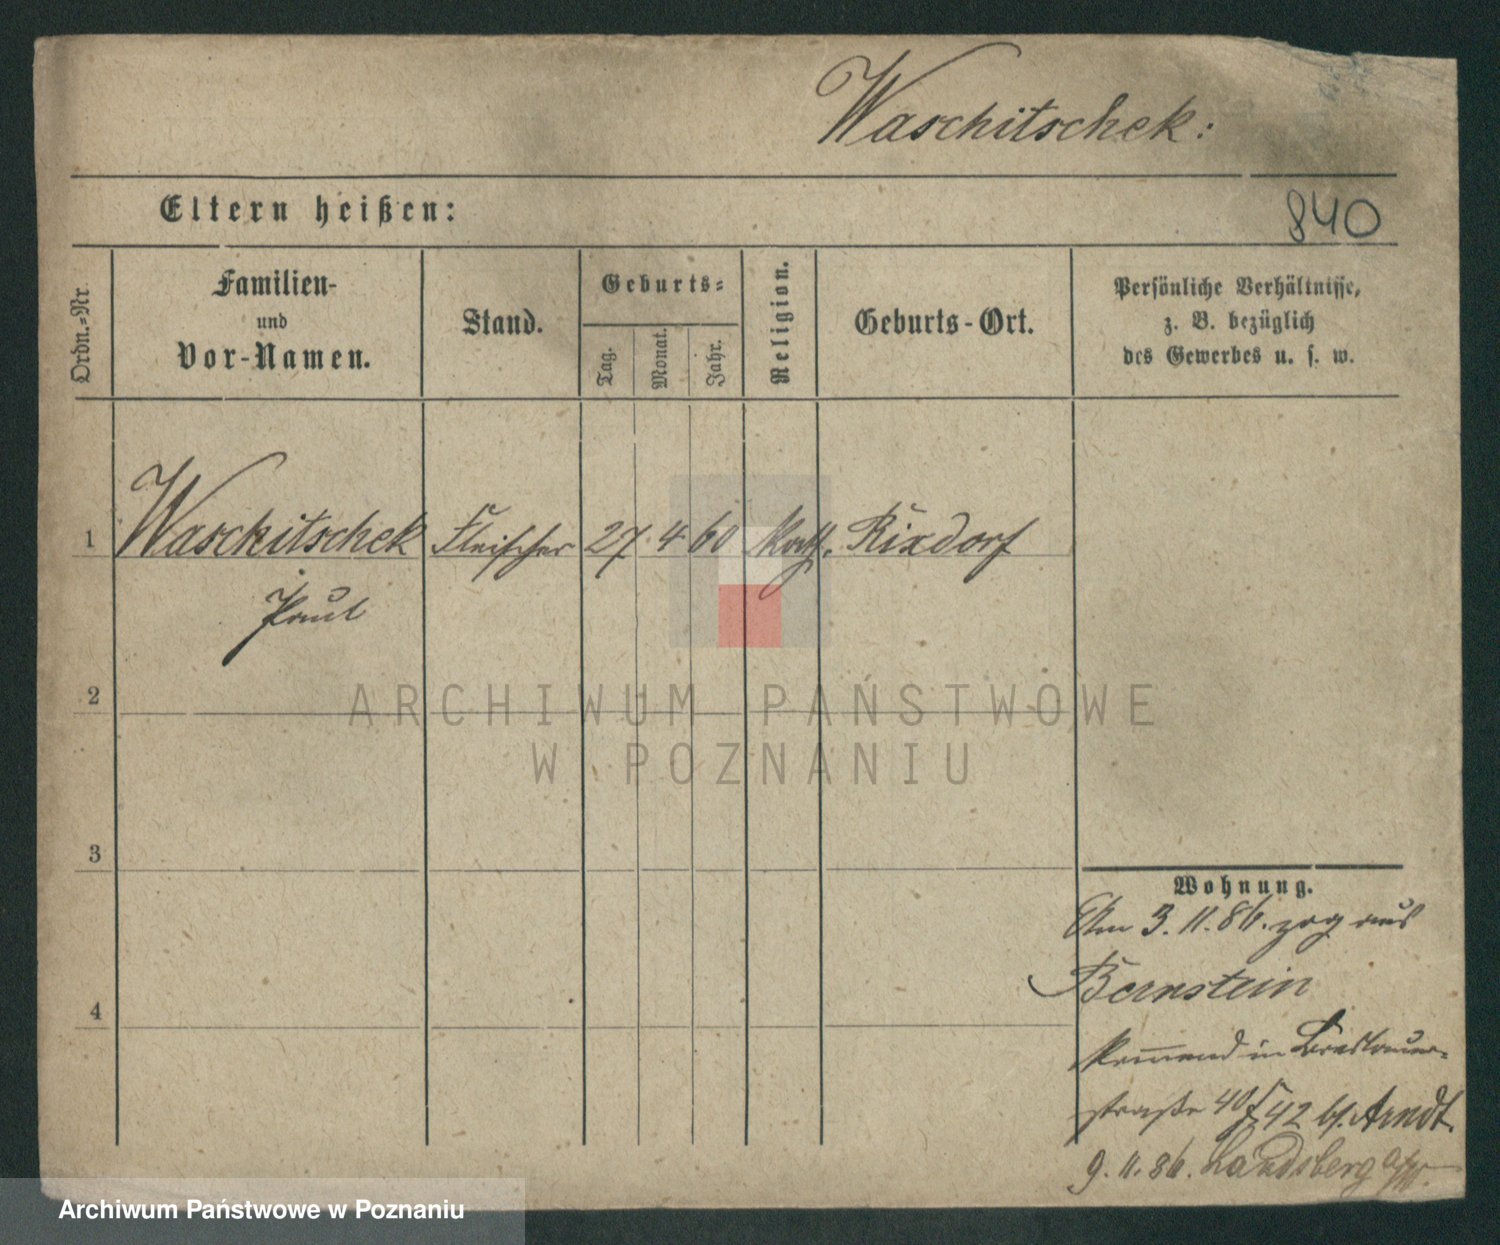 Waschitschek:
Eltern heißen:
840
Ordn.-Nr
Familien-
und
Vor-Namen.
Stand.
Geburts-
Tag.
Monat.
Jahr.
Religion.
Geburts-Ort.
Persönliche Verhältnisse,
z. B. bezüglich
des Gewerbes u. s. w.
1
Waschitschek
Fleischer
27
4
60
Kath.
Rixdorf
Paul
2
ARCHIWUM PAŃSTWOWE
W POZNANIU
3
Wohnung.
Am 3.11.86. zog aus
Bernstein
4
kommend in Breslauer-
straße 40/42 bei Arndt.
9.11.86. Landsberg a/W.
Archiwum Państwowe w Poznaniu